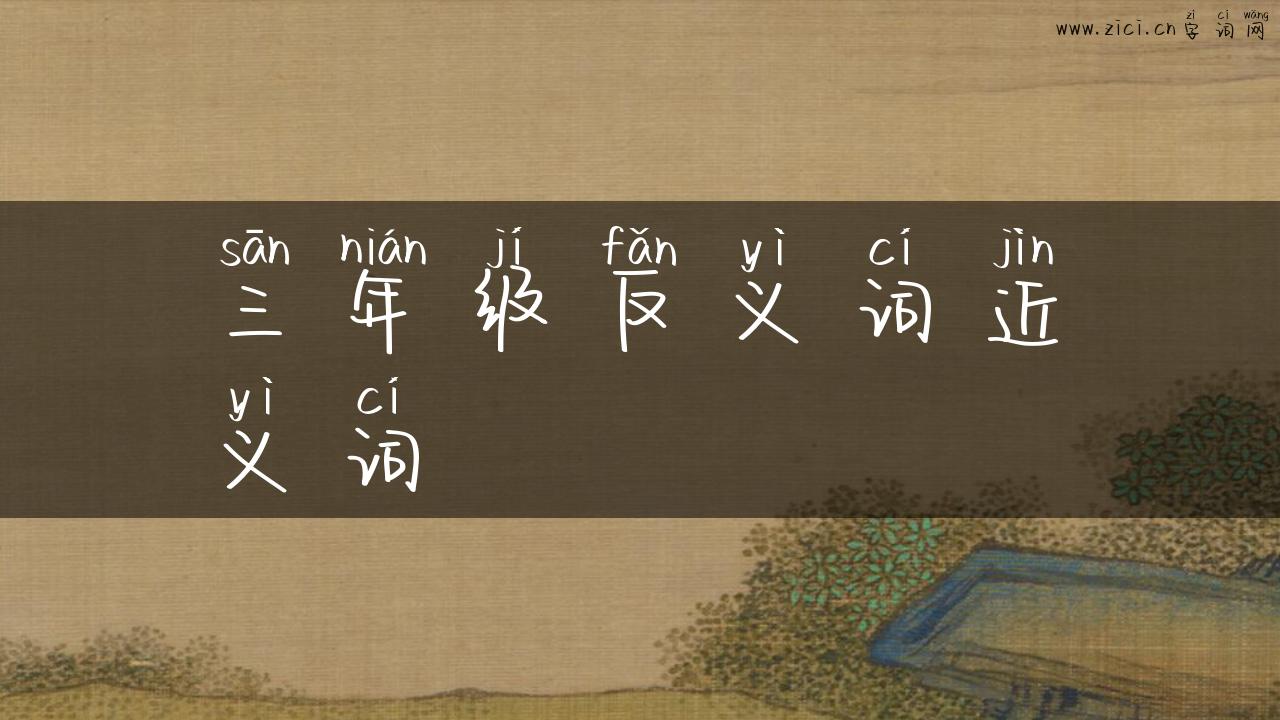 zì cí wǎng
www.zici.cn 字 词 网
sān nián jí fǎn yì cí jìn
三 年 级 反 义 词 近
yì cí
义 词